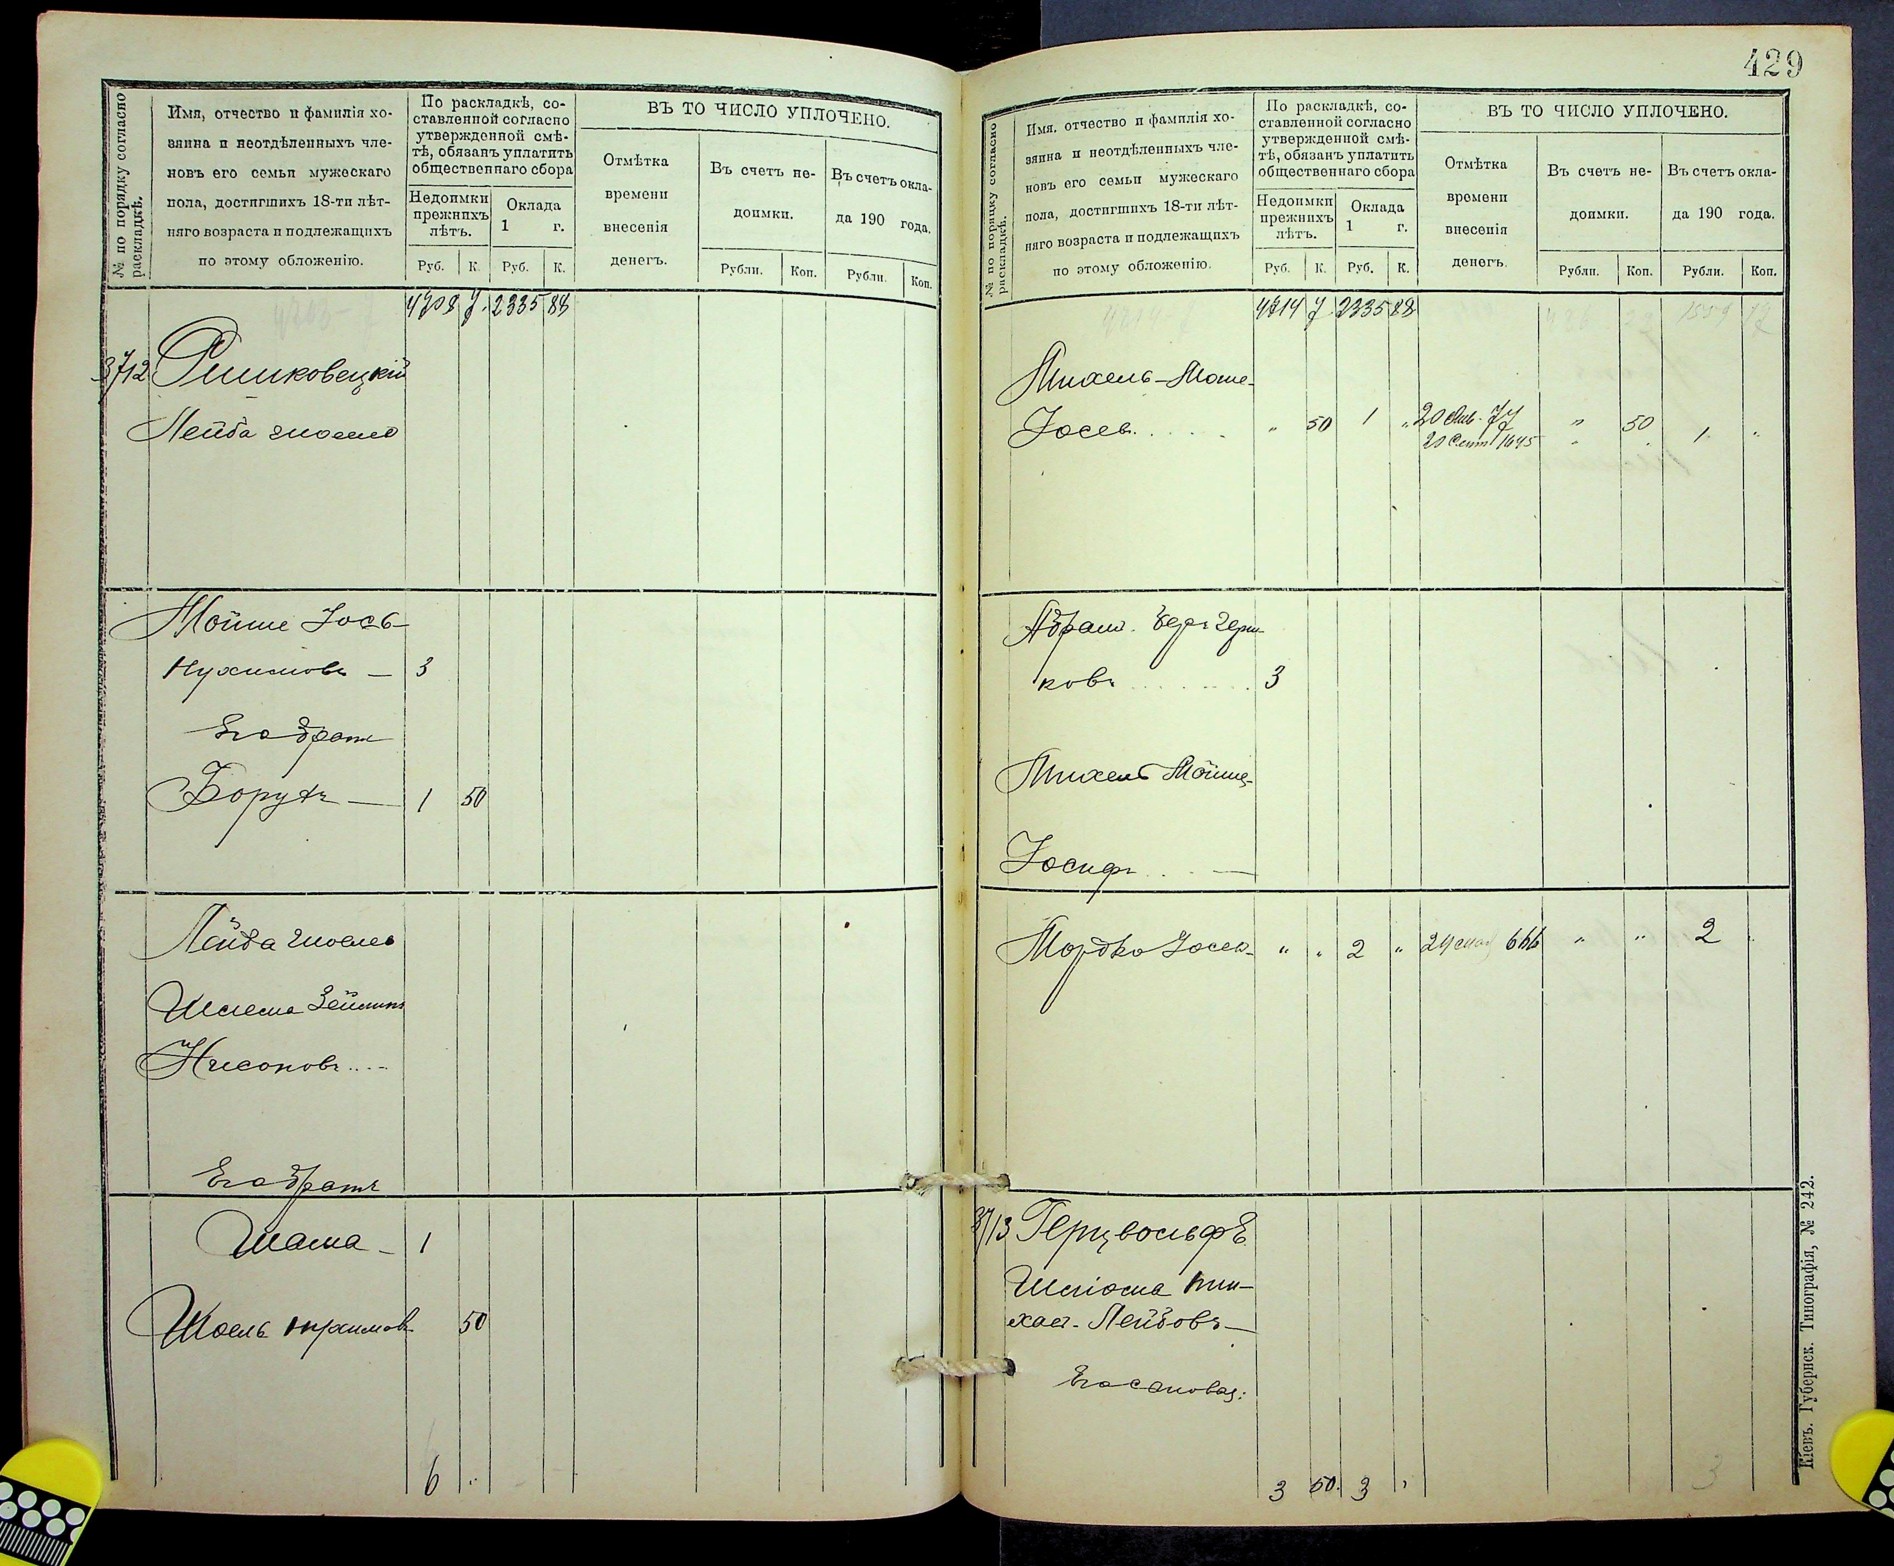 № по порядку согласно раскладкѣ.
Имя, отчество и фамилія хо-
зяина и неотдѣленныхъ чле-
новъ его семьи мужескаго
пола, достигшихъ 18-ти лѣт-
няго возраста и подлежащихъ
по этому обложенію.
По раскладкѣ, со-
ставленной согласно
утвержденной смѣ-
тѣ, обязанъ уплатить
общественнаго сбора
Недоимки
прежнихъ
лѣтъ.
Оклада
1 г.
Руб. К. Руб. К.
ВЪ ТО ЧИСЛО УПЛОЧЕНО.
Отмѣтка
времени
внесенія
денегъ.
Въ счетъ не-
доимки.
Въ счетъ окла-
да 190 года.
Рубли. Коп. Рубли. Коп.
4708 7. 2335 88
3712
Лейба
Мойше Іось
Нухимовъ — 3
Его братъ
Борухъ — 1 50
Лейба
Шлема Зейлинъ
Нисоновъ....
Его братъ
Шама — 1
Шоель Нухимовъ 50
6 "
429
№ по порядку согласно раскладкѣ.
Имя, отчество и фамилія хо-
зяина и неотдѣленныхъ чле-
новъ его семьи мужескаго
пола, достигшихъ 18-ти лѣт-
няго возраста и подлежащихъ
по этому обложенію.
По раскладкѣ, со-
ставленной согласно
утвержденной смѣ-
тѣ, обязанъ уплатить
общественнаго сбора
Недоимки
прежнихъ
лѣтъ.
Оклада
1 г.
Руб. К. Руб. К.
ВЪ ТО ЧИСЛО УПЛОЧЕНО.
Отмѣтка
времени
внесенія
денегъ.
Въ счетъ не-
доимки.
Въ счетъ окла-
да 190 года.
Рубли. Коп. Рубли. Коп.
4714 7 2335 88
Михель-Моше-
Іосев. . . . . " 50 1 " 20 Янв. 77 " 50
20 Сент 1645 " . 1 "
Абрам. Беръ Герш-
ковъ . . . . . . 3
Михель Мойше-
Іосифъ . . —
Мордко Іосев- " " 2 " 666 " " 2
3713 Герцвольфъ
Шлiома Пин-
хас. Лейбовъ —
Его сыновья:
3 50. 3 "
3
Кіевъ. Губернск. Типографія, № 242.